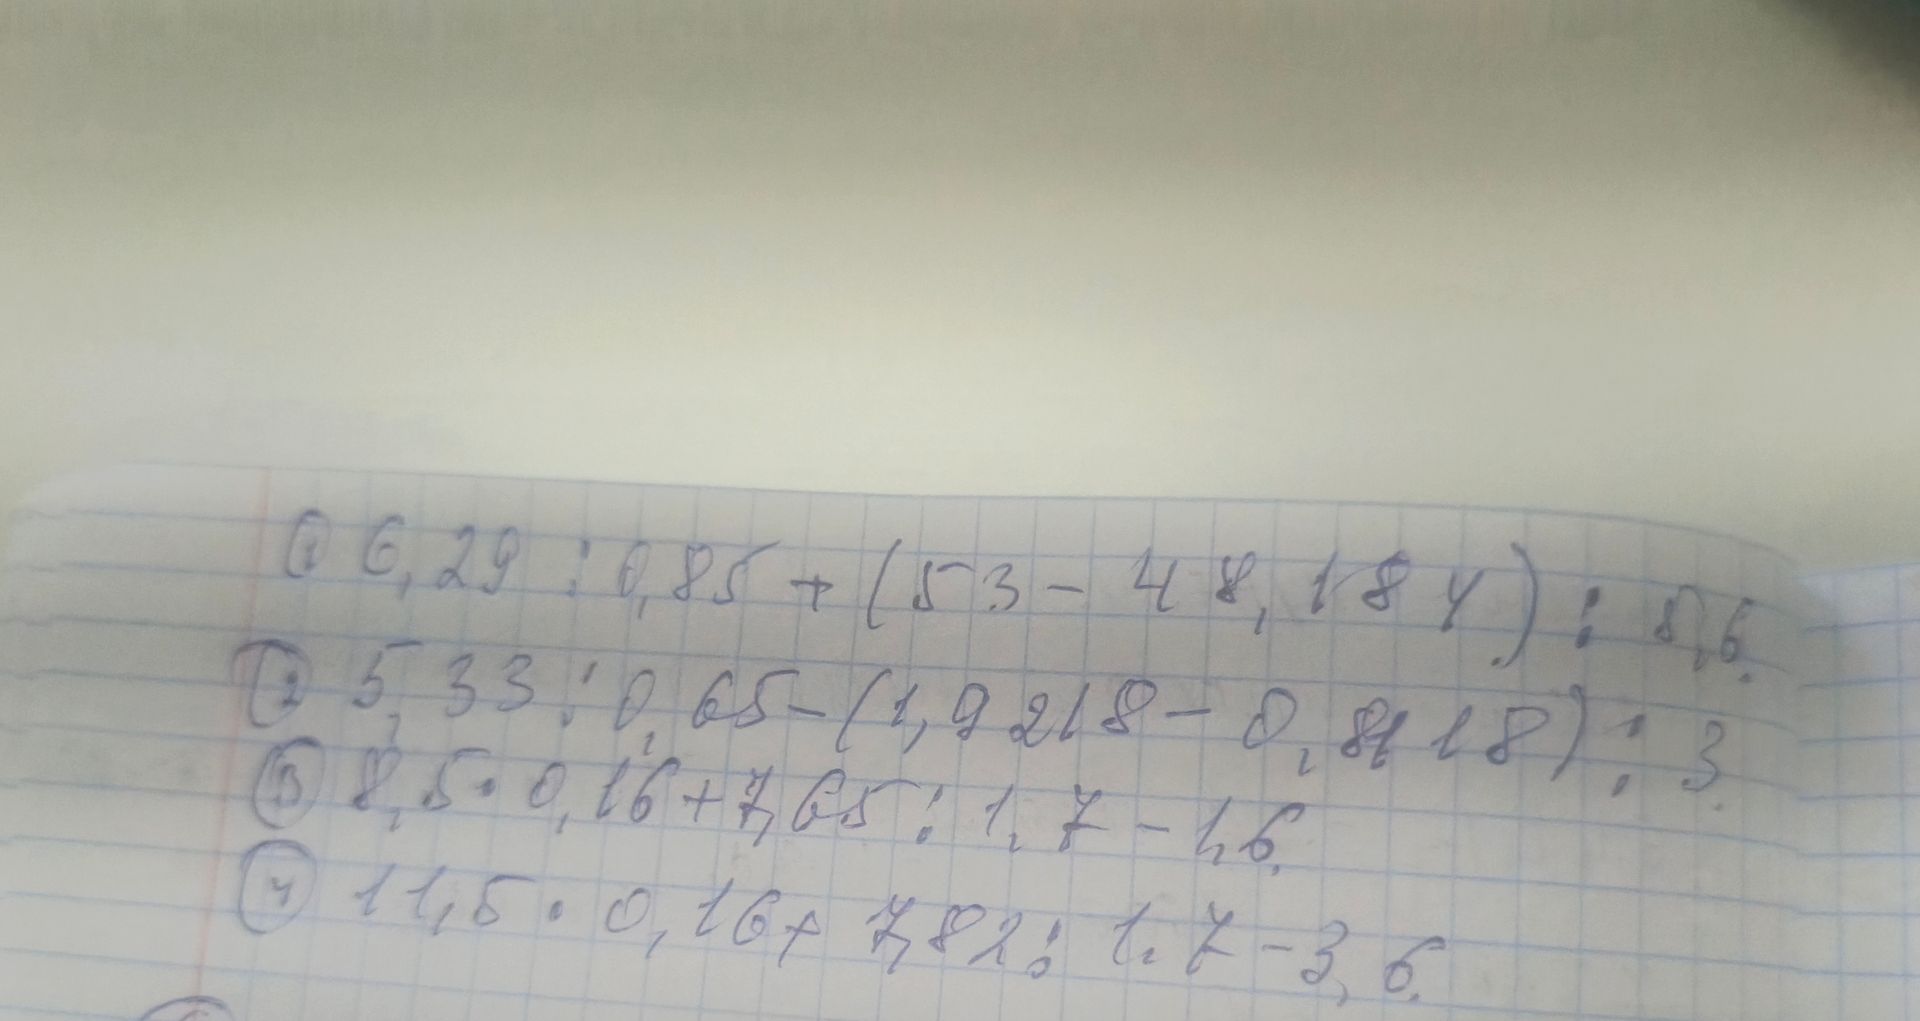 ① 6,29 : 0,85 + (53 - 48,184) : 5,6.
② 5,33 : 0,65 - (1,9218 - 0,8118) : 3.
③ 8,5 · 0,16 + 7,65 : 1,7 - 1,6.
④ 11,5 · 0,16 + 7,82 : 1,7 - 3,6.